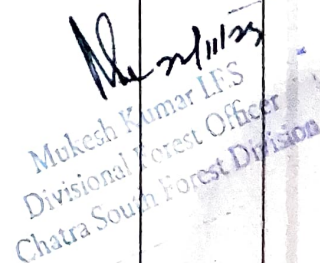 22/11/25
Mukesh Kumar IFS
Divisional Forest Officer
Chatra South Forest Division